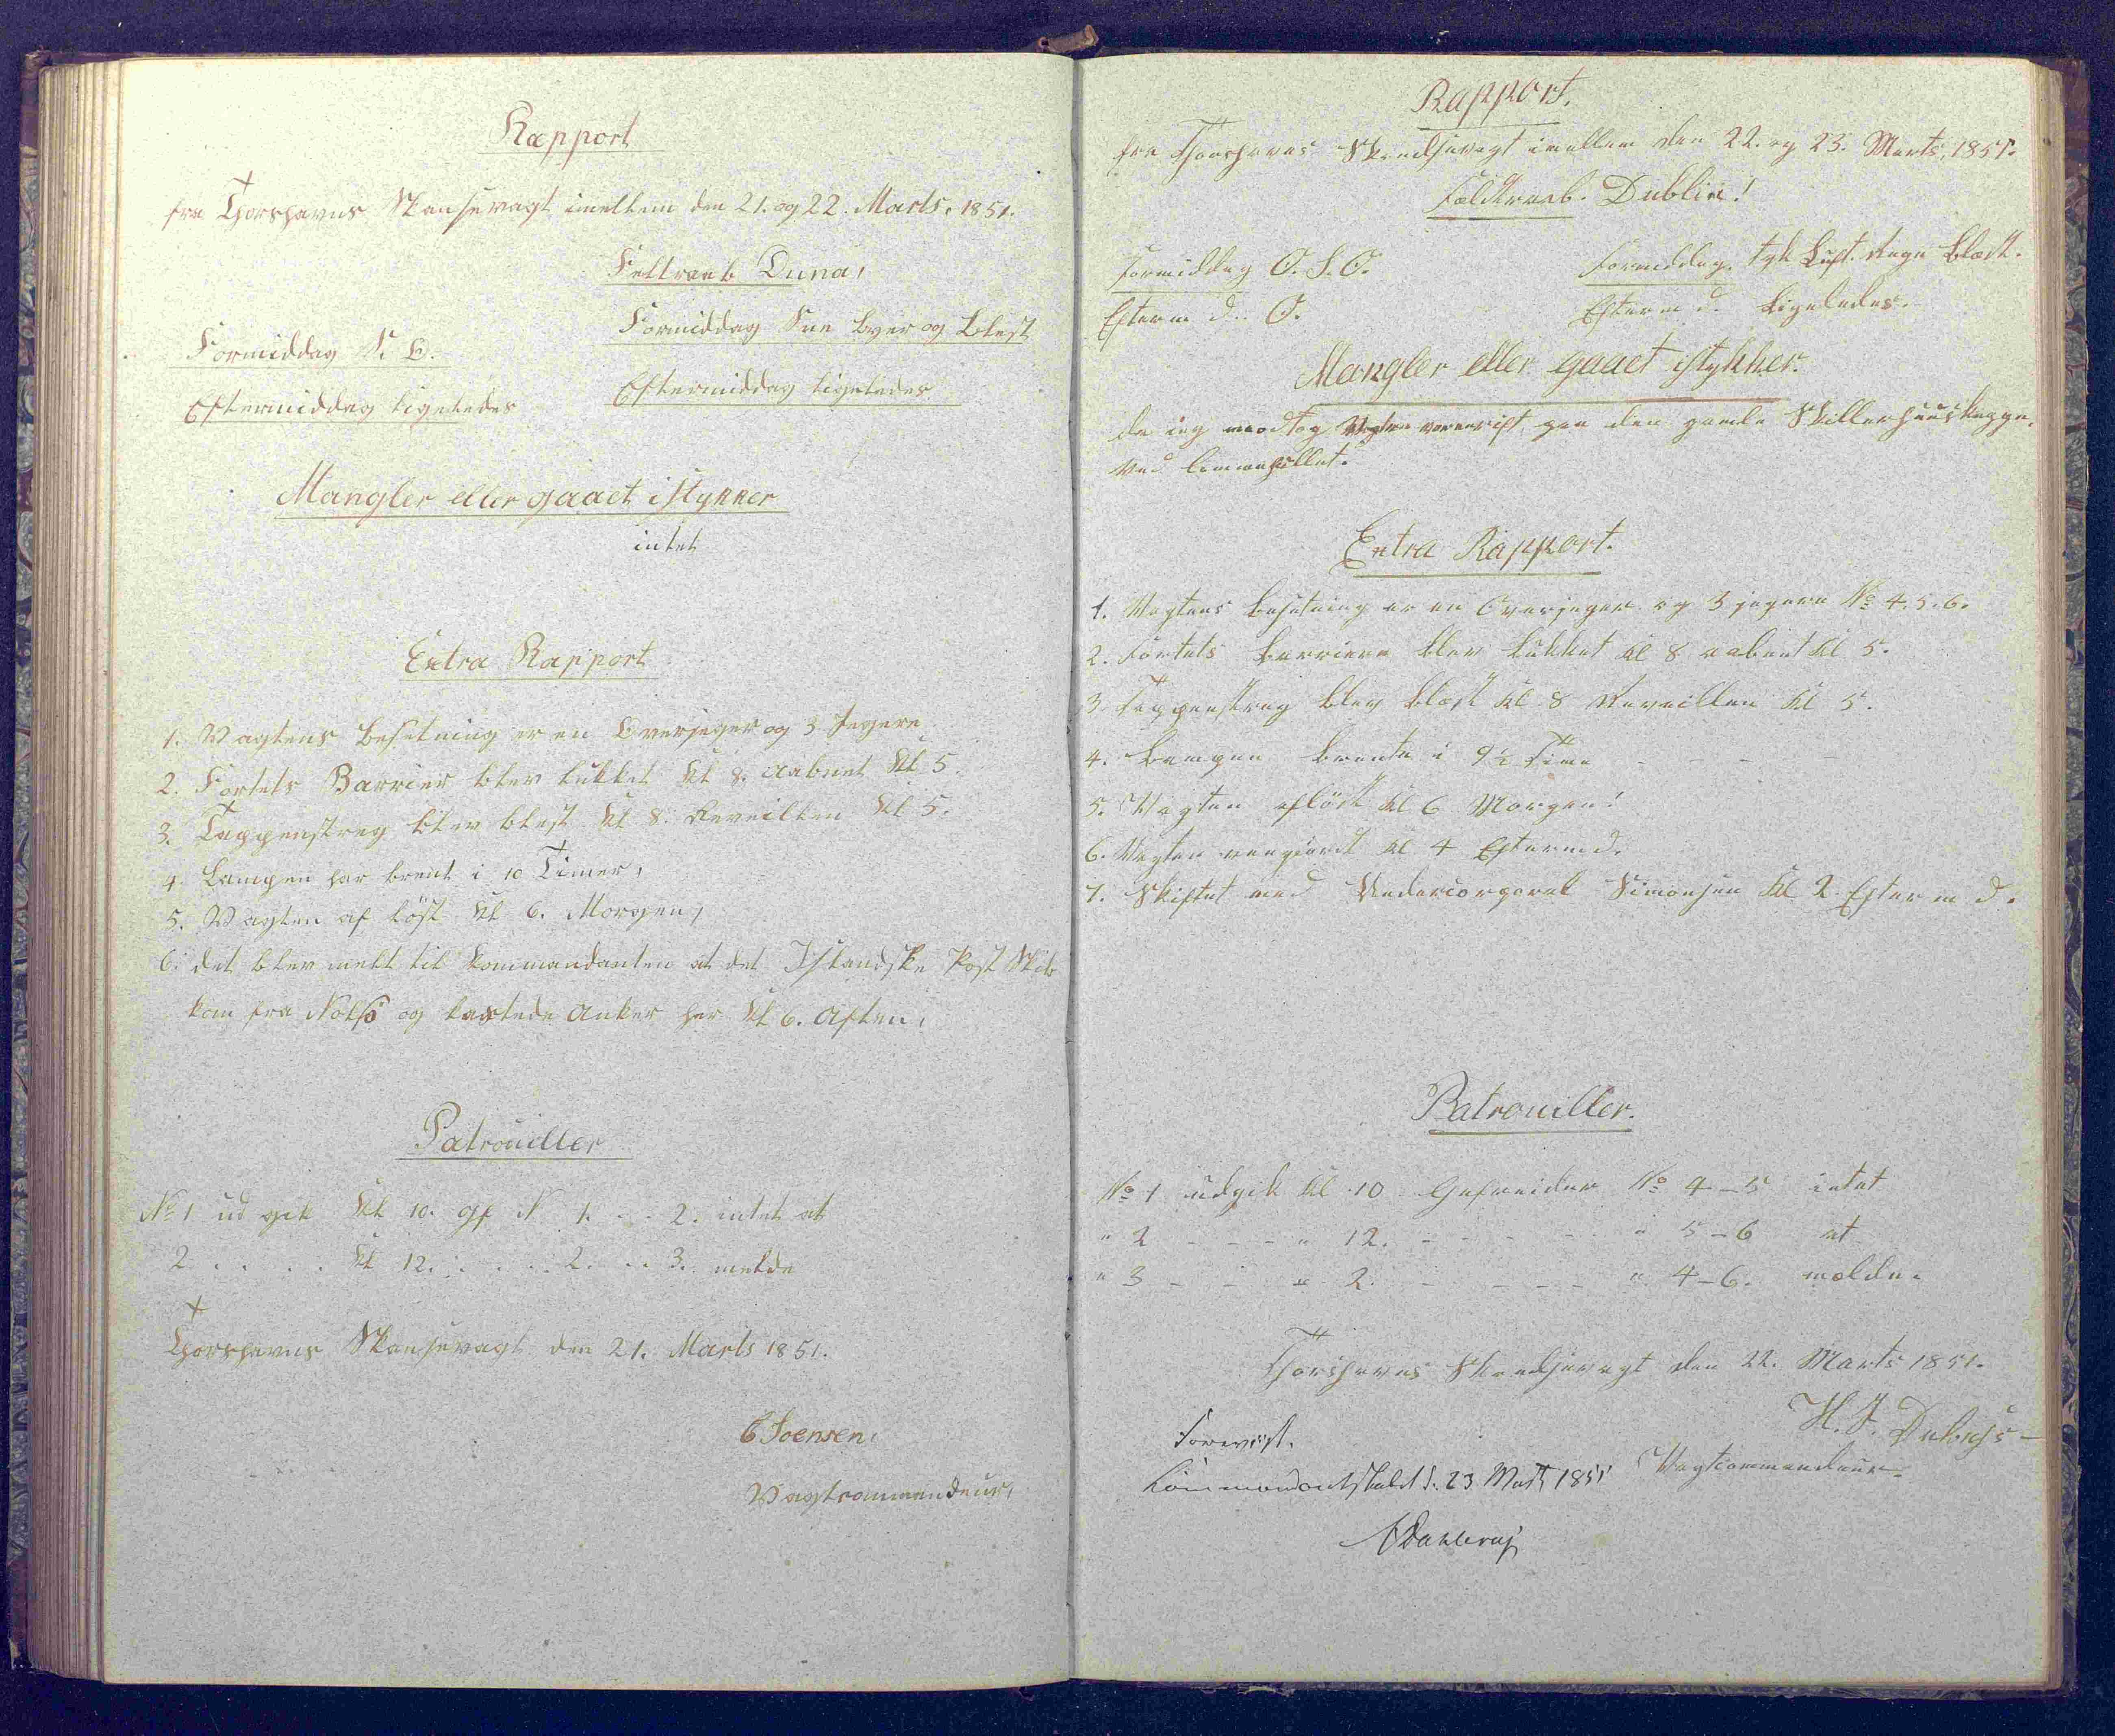 Rapport
fra Thorshavns Skansevagt imellem den 21. og 22. Marts. 1851.
Feltraab Duna,
Formiddag S. O.
Formiddag Sne Byer og Blest
Eftermiddag ligeledes
Eftermiddag ligeledes
Mangler eller gaaet i stykker
intet
Extra Rapport
1. Vagtens Besetning er en Overjeger og 3 Jegere
2. Fortets Barrier blev lukket Kl 8. aabnet Kl 5.
3. Tappenstreg blev blest Kl 8. Reveillen Kl 5.
4. Lampen har brent i 10 Timer,
5. Vagten af löst Kl 6. Morgen,
6. det blev melt til Kommandanten at det Islandske Post Skib
kom fra Nolsö og kastede Anker her Kl 6. Aften,
Patrouiller
No 1 ud gik Kl 10. gf N 1. - - 2. intet at
2 . . . . Kl 12. . . . . 2. . . 3. melde
Thorshavns Skansevagt den 21. Marts 1851.
Joensen,
Vagtcommandeur,
Rapport.
fra Thorshavns Skandsevagt imellem den 22. og 23. Marts, 1851.
Feldtraab. Dublin!
Formiddag O. S. O.
Formiddag. tyk Luft. Regn Blæst.
Efterm d. O.
Efterm d. Ligeledes.
Mangler eller gaaet istykker.
da jeg modtog Vagten paa den gamle
ved
Extra Rapport.
1. Vagtens besetning er en Overjeger og 3 jegere No 4. 5. 6.
2. Fortets barriere blev lukket Kl 8 aabent Kl 5.
3. Tappenstreg blev blæst Kl 8 Reveillen Kl 5.
4. Lampen brente i 9½ Time - - - -
5. Vagten aflöst Kl 6 Morgen!
6. Vagten rengiordt Kl 4 Efterm d.
7. Skiftet med Undercorporal Simonsen Kl 2 Efterm d.
Patrouiller.
No 1 udgik Kl 10 Gefreider No 4-5 intet
" 2 - - - " 12. - - - - " 5-6 at
" 3 - - " 2. - - - - " 4-6. mælde.
Thorshavns Skandsevagt den 22. Marts 1851.
H. J.
Vagtcommandeur.
Forevist.
23 Marts 1851
Dahlerup